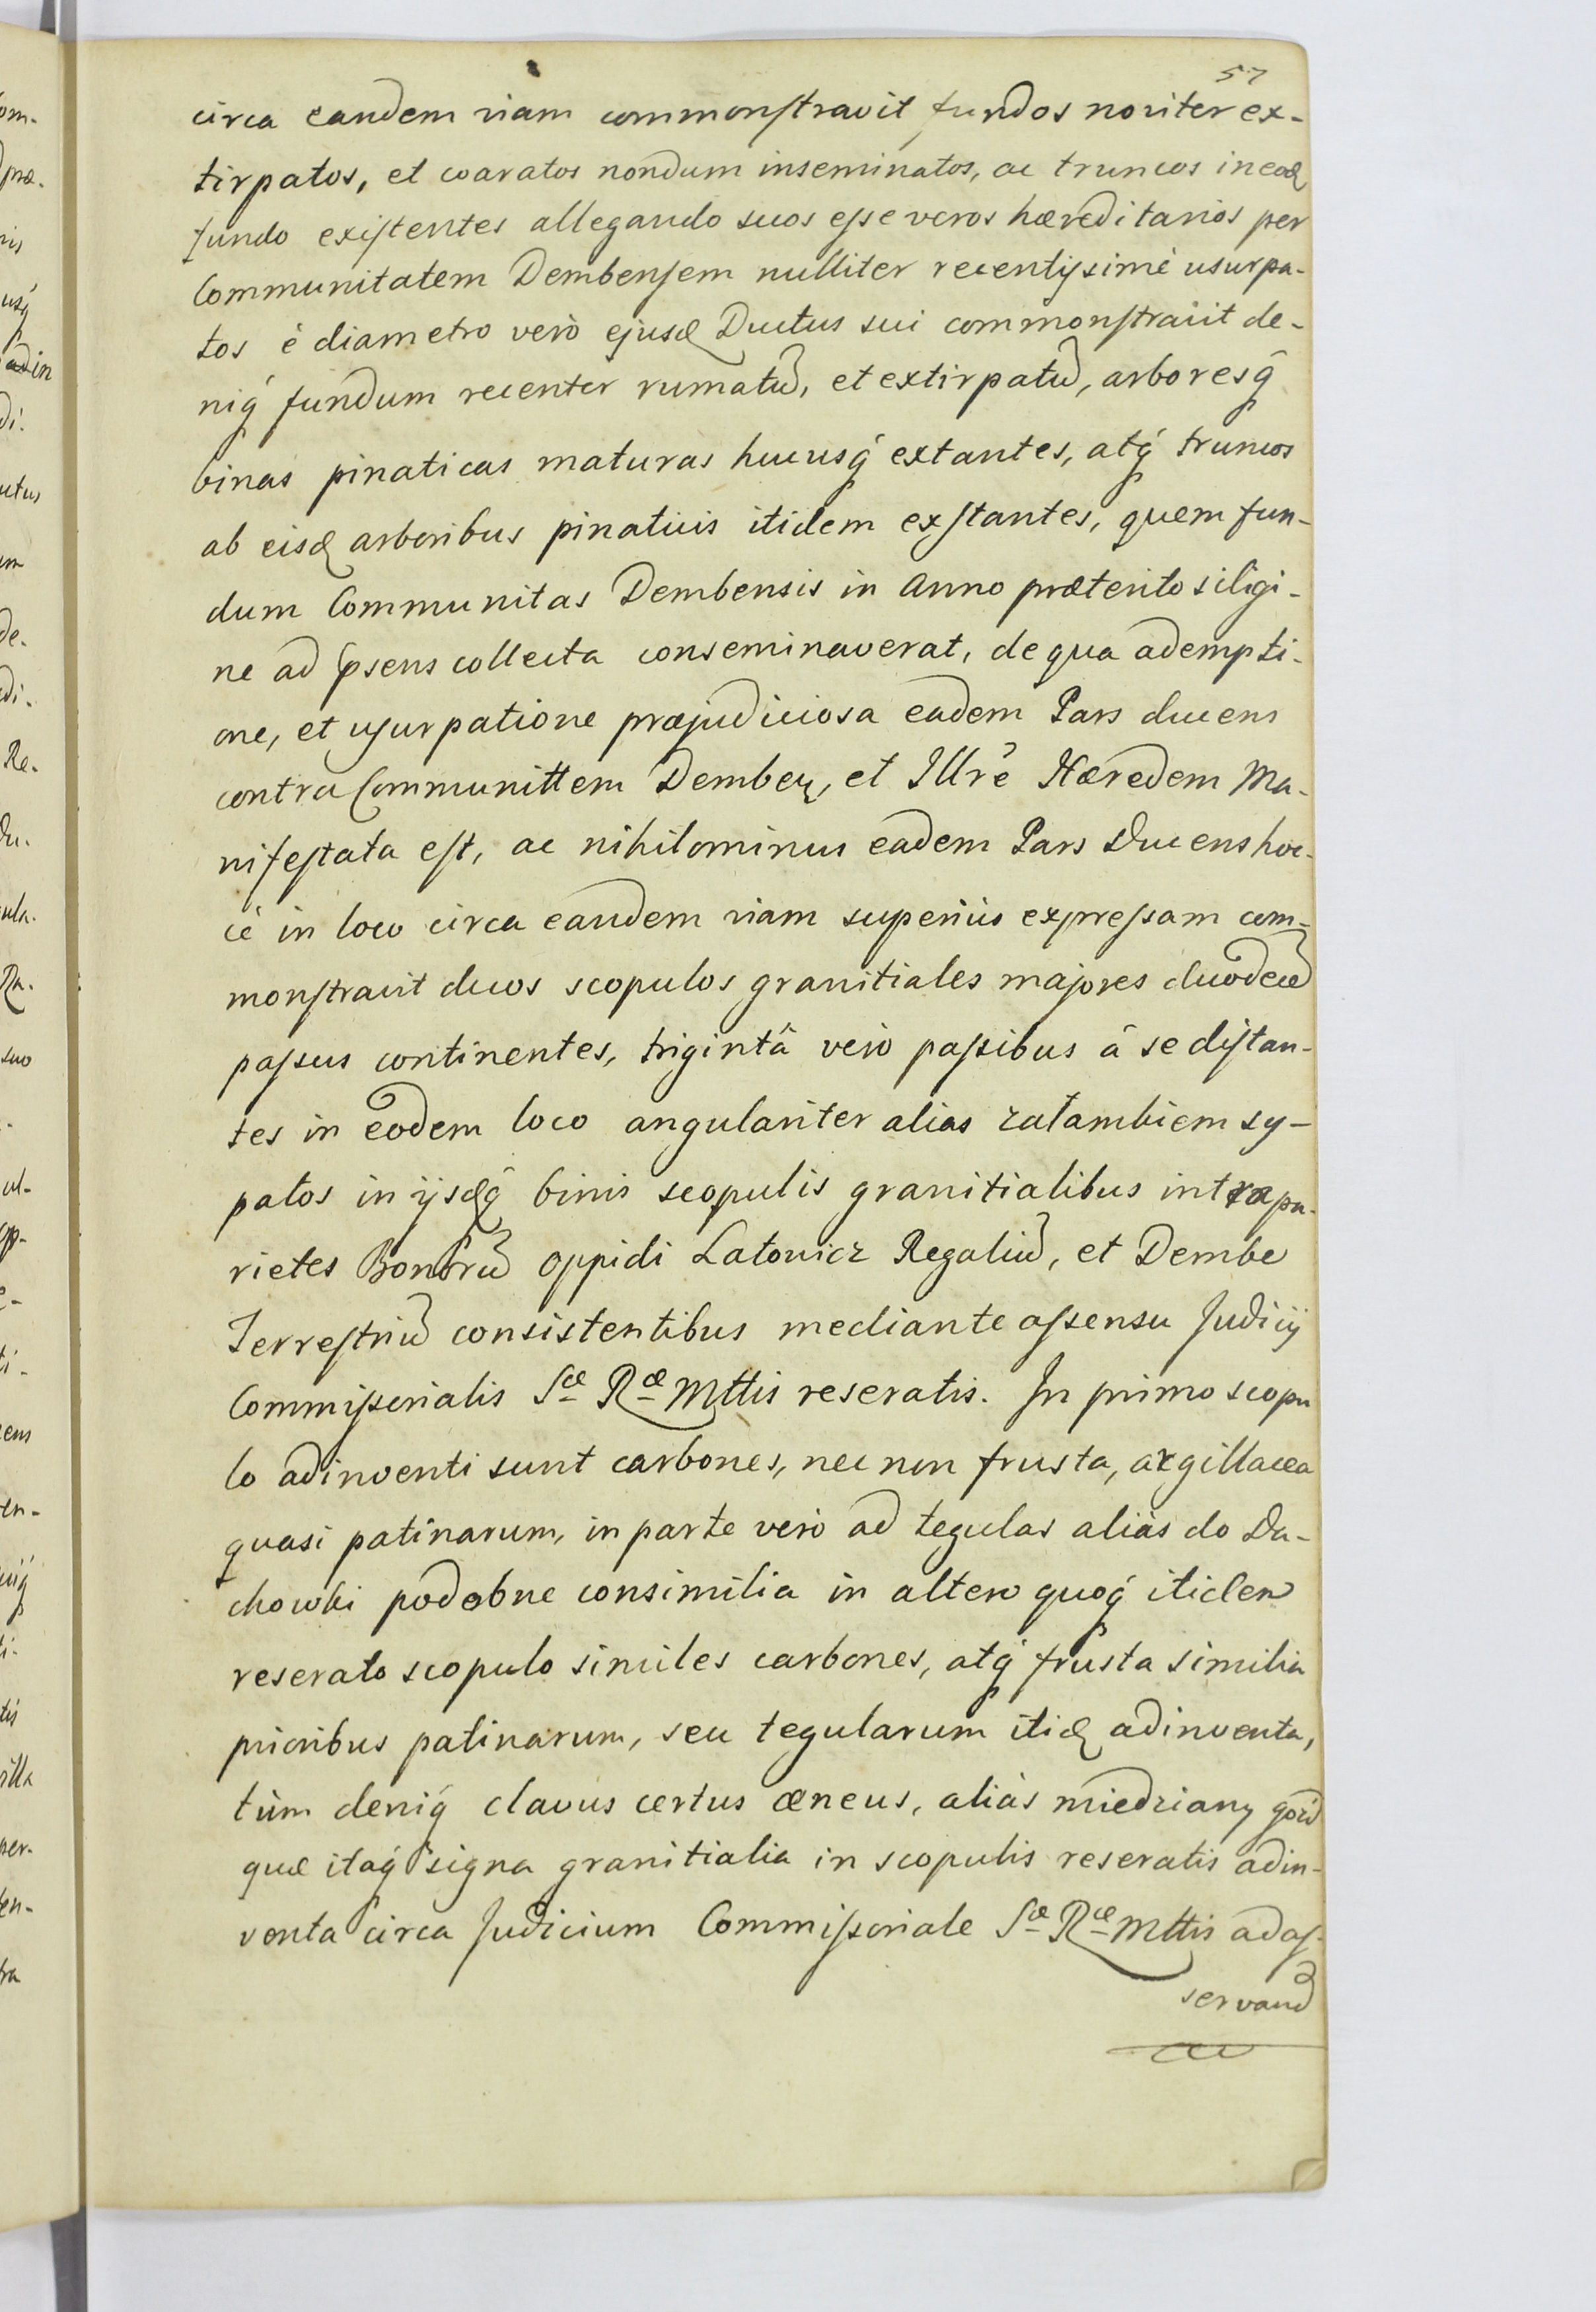 57
circa eandem viam commonstravit fundos noviter ex-
tirpatos, et coaratos nondum inseminatos, ac truncos in eod
fundo existentes allegando suos esse veros hæreditarios per
Communitatem Dembensem nulliter recentissimè usurpa-
tos è diametro verò ejusd Ductus sui commonstravit de-
niq fundum recenter rumatũ, et extirpatũ, arboresq
binas pinaticas maturas hucusq extantes, atq truncos
ab eisd arboribus pinaticis itidem exstantes, quem fun-
dum Communitas Dembensis in Anno præterito siligi-
ne ad psens collecta conseminaverat, de qua adempti-
one, et usurpatione præjudiciosa eadem Pars ducens
contra Communittem Demben, et Illrẽ Hæredem Ma-
nifestata est, ac nihilominus eadem Pars Ducens hoc-
cè in loco circa eandem viam superiùs expressam com-
monstravit duos scopulos granitiales majores duodecĩ
passus continentes, trigintâ verò passibus â se distan-
tes in eodem loco angulariter alias załambiem sy-
patos in ijsdq binis scopulis granitialibus intra pa-
rietes Bonorũ Oppidi Latowicz Regaliũ, et Dembe
Terrestriũ consistentibus mediante assensu Judicij
Commissorialis Sæ Ræ Mttis reseratis. In primo scopu
lo adinventi sunt carbones, nec non frusta, argillacea
quasi patinarum, in parte verò ad tegulas aliàs do Da-
chowki podobne consimilia in altero quoq itidem
reserato scopulo similes carbones, atq frusta similia
prioribus patinarum, seu tegularum itid adinventa,
tùm deniq clavus certus æneus, aliàs miedziany gozd
quæ itaq signa granitialia in scopulis reseratis adin-
venta circa Judicium Commissoriale Sæ Ræ Mttis ad as-
servand